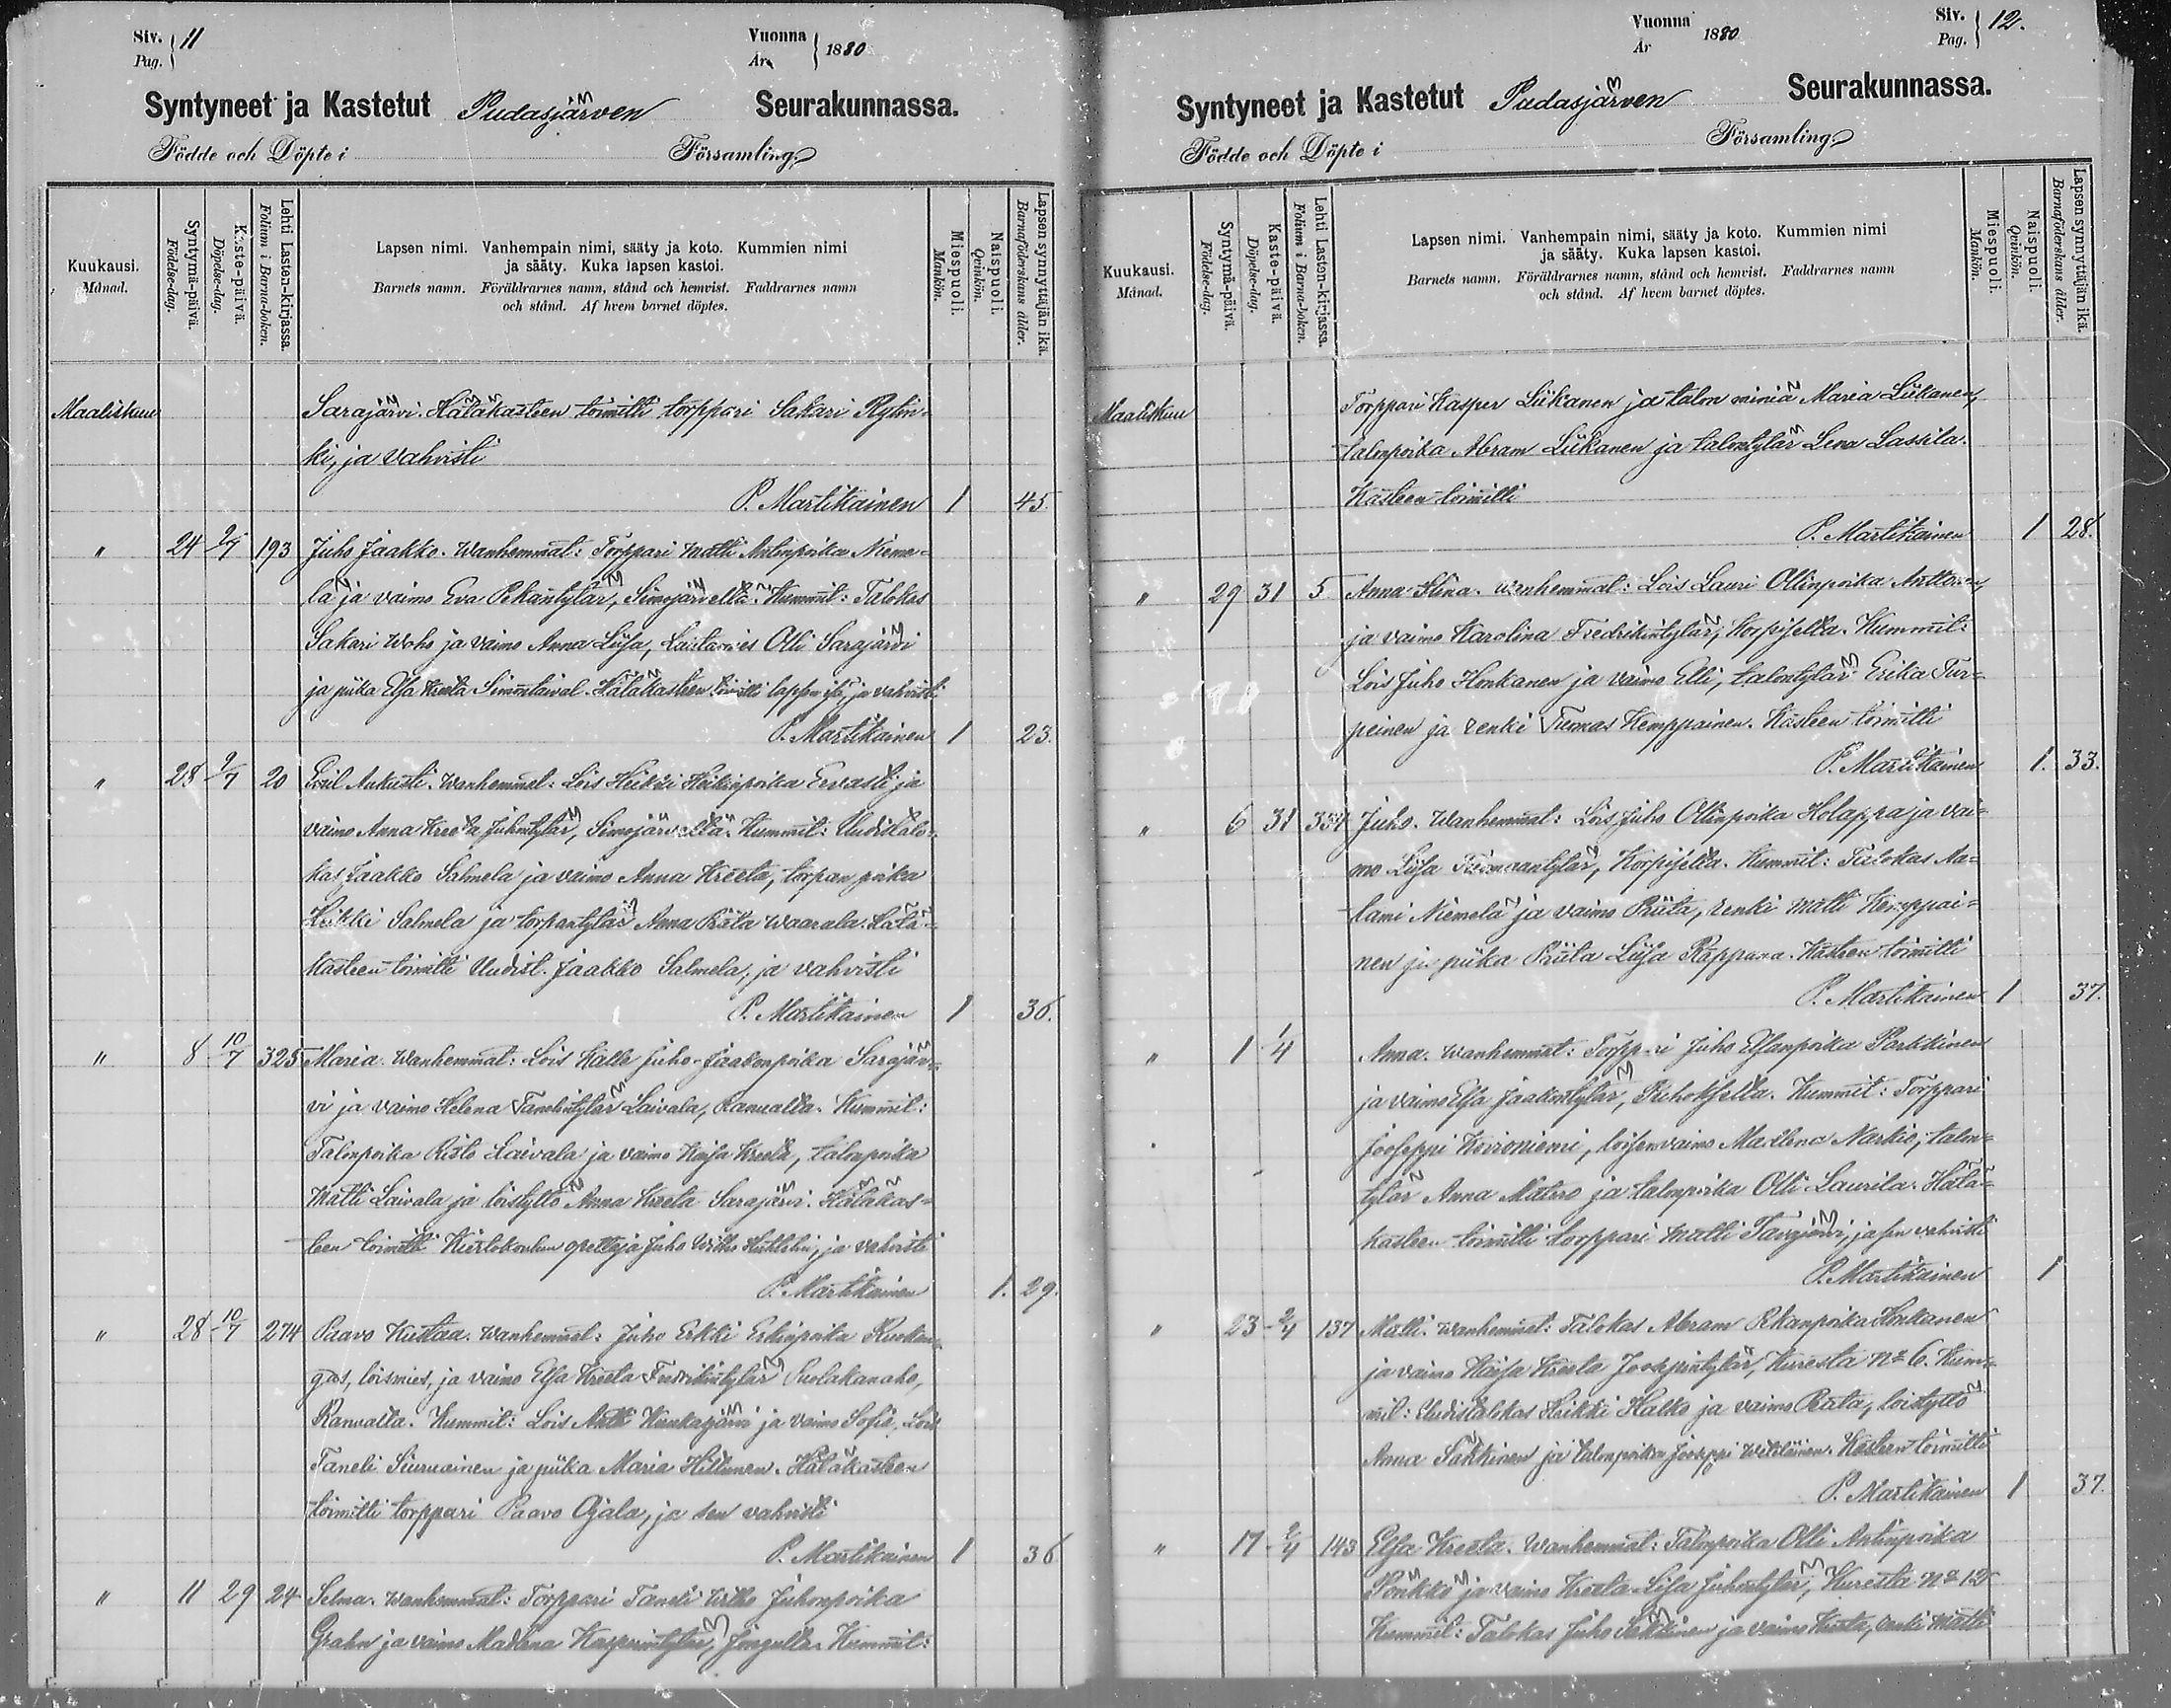 Siv. 11
Pag.
Vuonna 1880
År
Syntyneet ja Kastetut Pudasjärven Seurakunnassa.
Födde och Döpte i Församling.
Kuukausi.
Månad.
Syntymä-päivä.
Födelse-dag.
Kaste-päivä.
Döpelse-dag.
Lehti Lasten-kirjassa.
Folium i Barna-boken.
Lapsen nimi. Vanhempain nimi, sääty ja koto. Kummien nimi
ja sääty. Kuka lapsen kastoi.
Barnets namn. Föräldrarnes namn, stånd och hemvist. Faddrarnes namn
och stånd. Af hvem barnet döptes.
Miespuoli.
Mankön.
Naispuoli.
Qvinkön.
Lapsen synnyttäjän ikä.
Barnaföderskans ålder.
Maaliskuu Sarajärvi. Hätäkasteen toimitti torppari Sakari Rytin-
ki, ja vahvisti
P. Martikainen 1 45.
" 24 9/7 193 Juho Jaakko. Wanhemmat: Torppari Matti Antinpoika Nieme-
lä ja vaimo Eva Pekantytär, Simojärveltä. Kummit: Talokas
Sakari Woho ja vaimo Anna Liisa, Lautamies Olli Sarajärvi
ja piika Elsa Kreeta Simontaival. Hätäkasteen toimitti lapsen isä, ja vahvisti
P. Martikainen 1 23.
" 28 9/7 20 Emil Aukusti. Wanhemmat: Lois Heikki Heikinpoika Ervasti ja
vaimo Anna Kreeta Juhontytär, Simojärveltä. Kummit: Uudistalo-
kas Jaakko Salmela ja vaimo Anna Kreeta, torpan poika
Heikki Salmela ja torpantytär Anna Priita Waarala. Hätä-
kasteen toimitti Uudist. Jaakko Salmela, ja vahvisti
P. Martikainen 1 36.
" 8 10/7 325 Maria. Wanhemmat: Lois Kalle Juho Jaakonpoika Sarajär-
vi ja vaimo Helena Tanelintytär Laivala, Ranualta. Kummit:
Talonpoika Risto Laivala ja vaimo Kaisa Kreeta, talonpoika
Matti Laivala ja loistyttö Anna Kreeta Sarajärvi. Hätäkas-
teen toimitti Kiertokoulun opettaja Juho Wilho Huttilin, ja vahvisti
P. Martikainen 1. 29.
" 28 10/7 274 Paavo Kustaa. Wanhemmat: Juho Erkki Erkinpoika Kuokan-
gas, loismies, ja vaimo Elsa Kreeta Fredrikintytär Puolakanaho,
Ranualta. Kummit: Lois Antti Kuukasjärvi ja vaimo Sofia, Lois
Taneli Siuruainen ja piika Maria Hiltunen. Hätäkasteen
toimitti torppari Paavo Ojala, ja sen vahvisti
P. Martikainen 1 36
" 11 29 24 Selma. Wanhemmat: Torppari Taneli Wilho Juhonpoika
Grahn ja vaimo Madlena Kasperintytär, Jongulta. Kummit:
Vuonna 1880
År
Siv. 12.
Pag.
Syntyneet ja Kastetut Pudasjärven Seurakunnassa.
Födde och Döpte i Församling.
Kuukausi.
Månad.
Syntymä-päivä.
Födelse-dag.
Kaste-päivä.
Döpelse-dag.
Lehti Lasten-kirjassa.
Folium i Barna-boken.
Lapsen nimi. Vanhempain nimi, sääty ja koto. Kummien nimi
ja sääty. Kuka lapsen kastoi.
Barnets namn. Föräldrarnes namn, stånd och hemvist. Faddrarnes namn
och stånd. Af hvem barnet döptes.
Miespuoli.
Mankön.
Naispuoli.
Qvinkön.
Lapsen synnyttäjän ikä.
Barnaföderskans ålder.
Maaliskuu Torppari Kasper Liikanen ja talon miniä Maria Liikanen,
talonpoika Abram Liikanen ja talontytär Lena Lassila.
Kasteen toimitti
P. Martikainen 1 28.
" 29 31 5 Anna Stina. Wanhemmat: Lois Lauri Ollinpoika Anttonen,
ja vaimo Karolina Fredrikintytär, Korpiselta. Kummit:
Lois Juho Honkanen ja vaimo Elli, talontytär Erika Tur-
peinen ja renki Tuomas Kemppainen. Kasteen toimitti
P. Martikainen 1. 33.
" 6 31 334 Juho. Wanhemmat: Lois Juho Ollinpoika Holappa ja vai-
mo Liisa Tuomaantytär, Korpiselta. Kummit: Talokas Aa-
tami Niemelä ja vaimo Priita, renki Matti Kemppai-
nen ja piika Priita Liisa Räppänä. Kasteen toimitti
P. Martikainen 1 37.
" 1 1/4 Anna. Wanhemmat: Torppari Juho Esanpoika Parkkinen
ja vaimo Elsa Jaakontytär, Puhokselta. Kummit: Torppari
Jooseppi Koironiemi, loisen vaimo Madlena Narkio, talon-
tytär Anna Matero ja talonpoika Olli Laurila. Hätä-
kasteen toimitti torppari Matti Tavajärvi, ja sen vahvisti
P. Martikainen 1
" 23 2/4 137 Matti. Wanhemmat: Talokas Abram Pekanpoika Honkanen
ja vaimo Kaisa Kreeta Joosepintytär, Kuresta No 6. Kum-
mit: Uudistalokas Heikki Halko ja vaimo Priita, loistyttö
Anna Sakkinen ja talonpoika Jooseppi Weteläinen. Kasteen toimitti
P. Martikainen 1 37.
" 17 2/4 143 Elsa Kreeta. Wanhemmat: Talonpoika Olli Antinpoika
Pönkkö ja vaimo Kreeta Liisa Juhontytär, Kuresta No 12
Kummit: Talokas Juho Sakkinen ja vaimo Kreeta, renki Matti